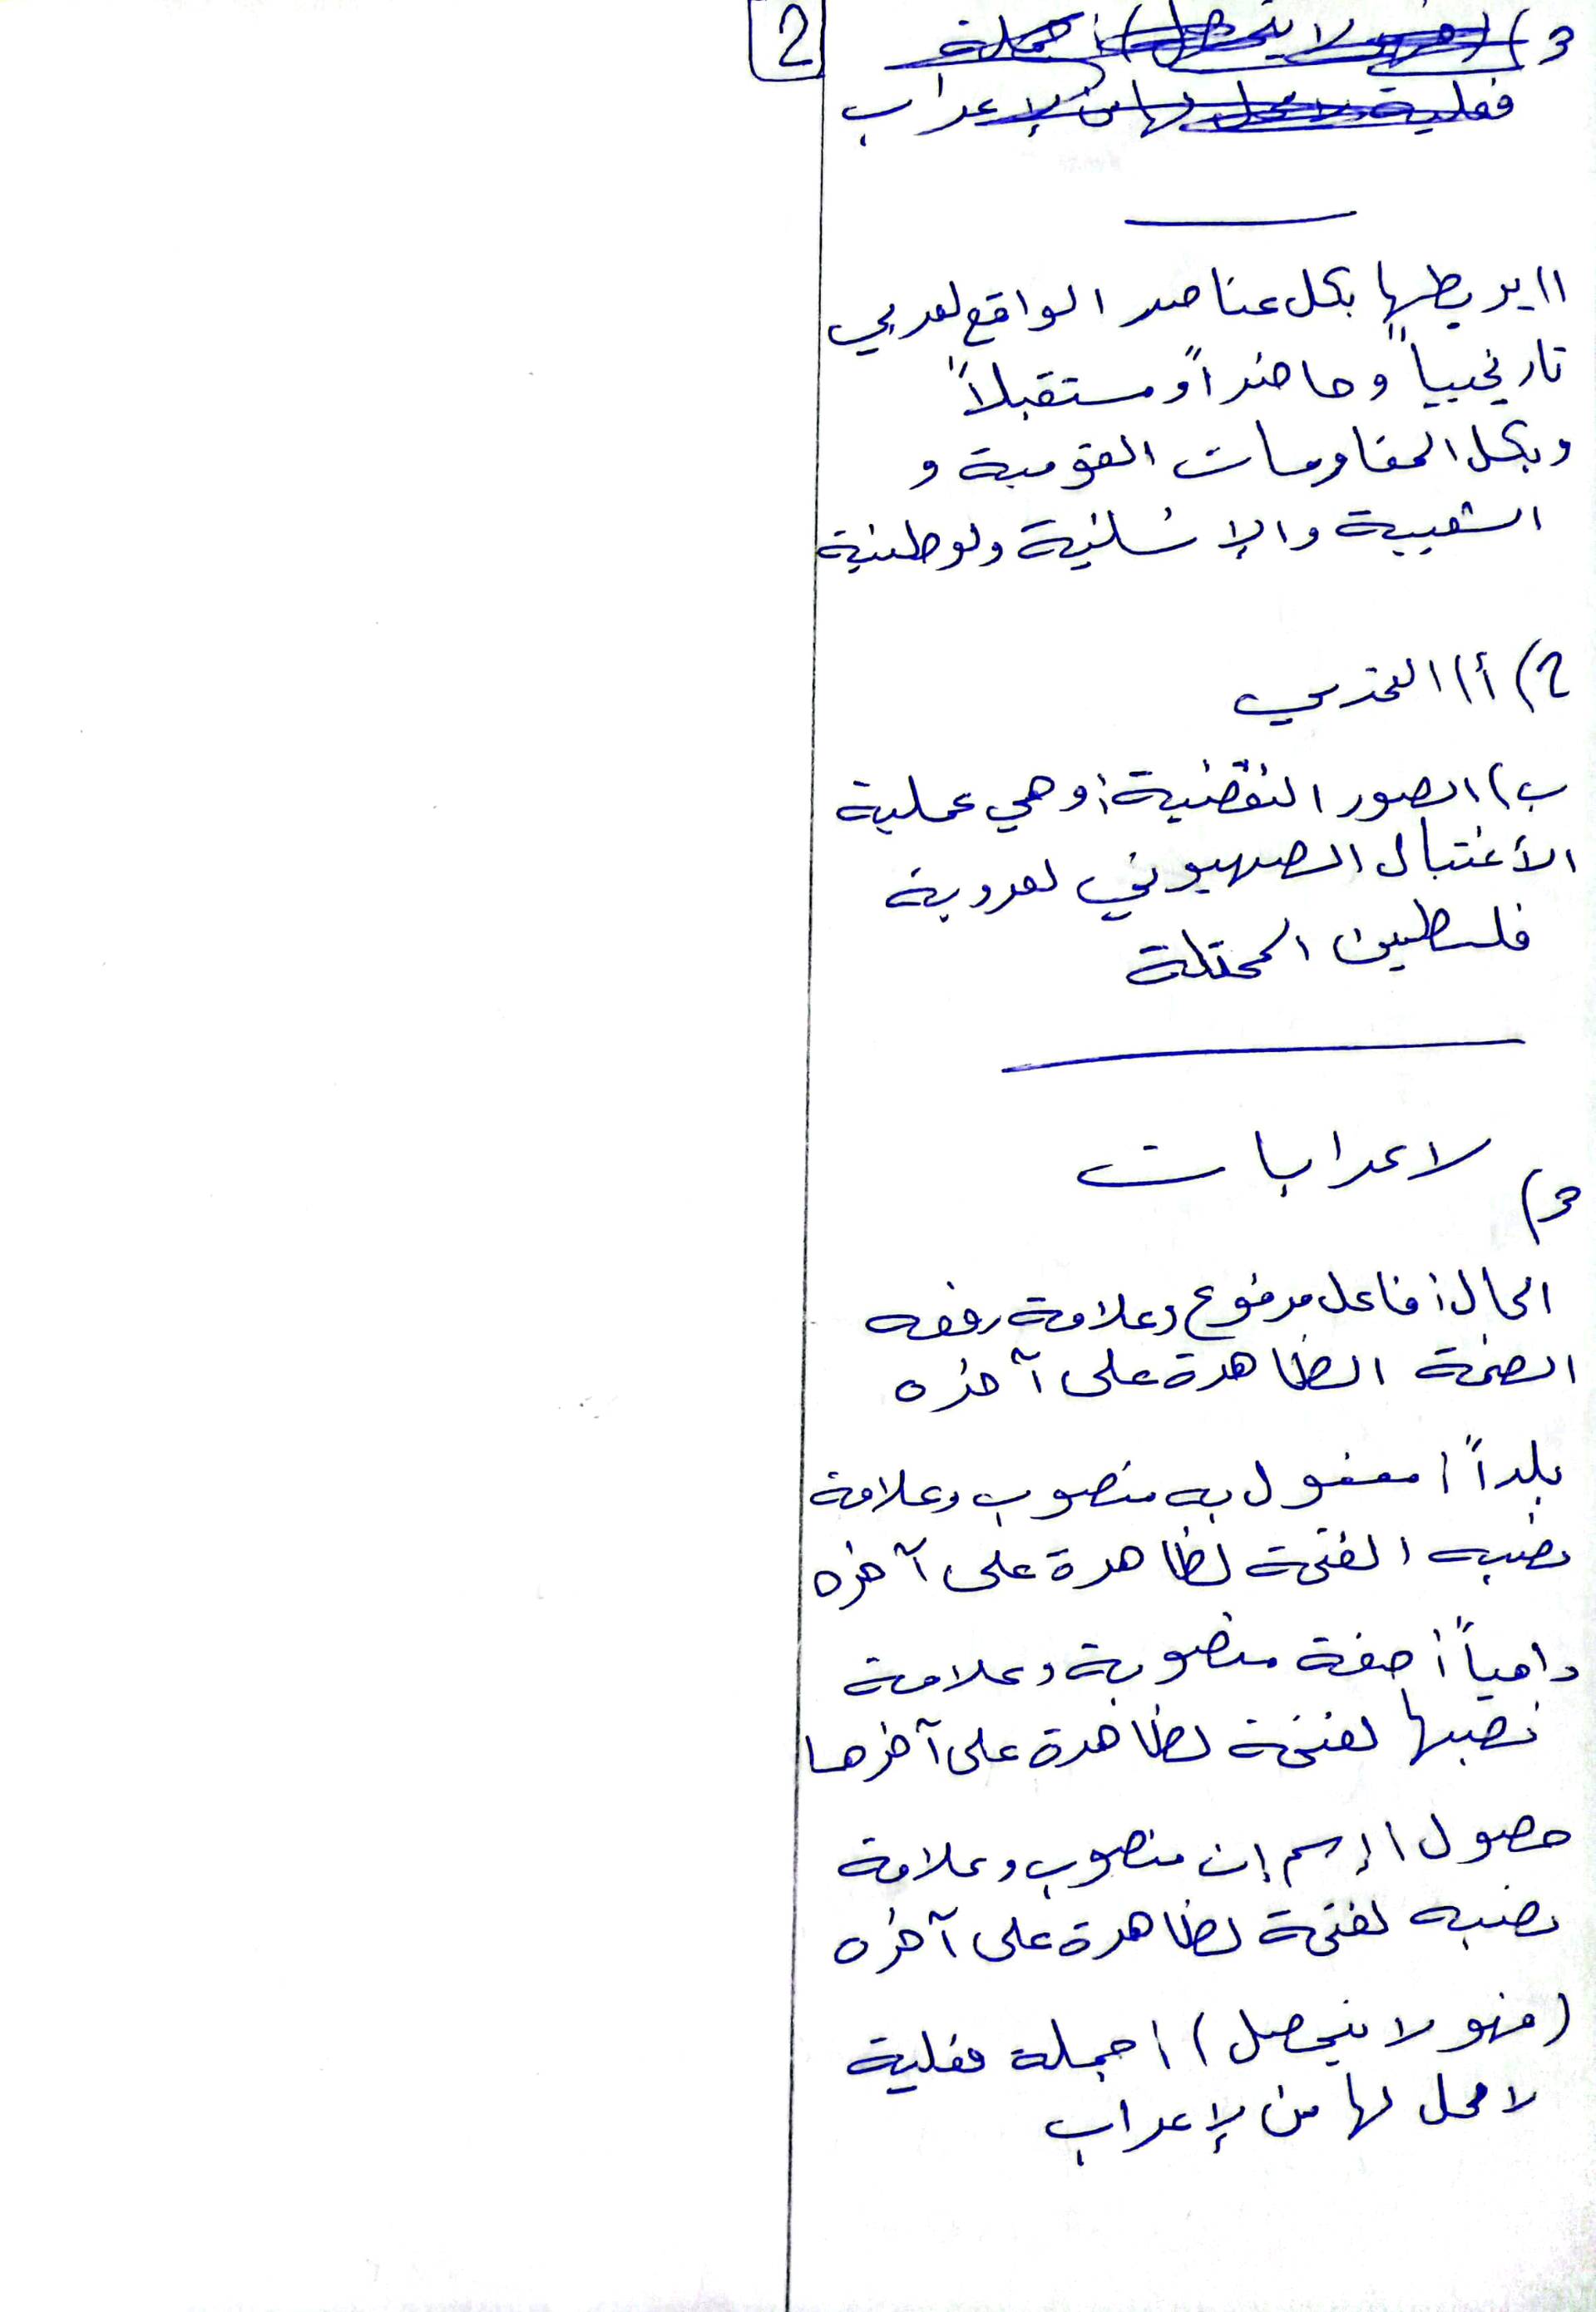 2
3) (فهو لا يتحصل): جملة
فعلية لا محل لها من الإعراب
1) يربطها بكل عناصر الواقع لعربي
تاريخيياً وحاضراً ومستقبلاً
وبكل المقاومات القومية و
الشعبية والإنسانية ولوطنية
2) أ)
ب) الصور النقضية: وهي عملية
الأغتيال الصهيوني لعروبة
فلسطين المحتلة
لاعرابات
3)
الحال: فاعل مرفوع وعلامة رفعه
الضمة الظاهرة على آخره
بلداً: مفعول به منصوب وعلامة
نصبه الفتحة لظاهرة على آخره
دامياً: صفة منصوبة وعلامة
نصبها لفتحة لظاهرة على آخرها
حصول: إسم إن منصوب وعلامة
نصبه لفتحة لظاهرة على آخره
(فهو لا يتحصل): جملة فعلية
لا محل لها من لإعراب